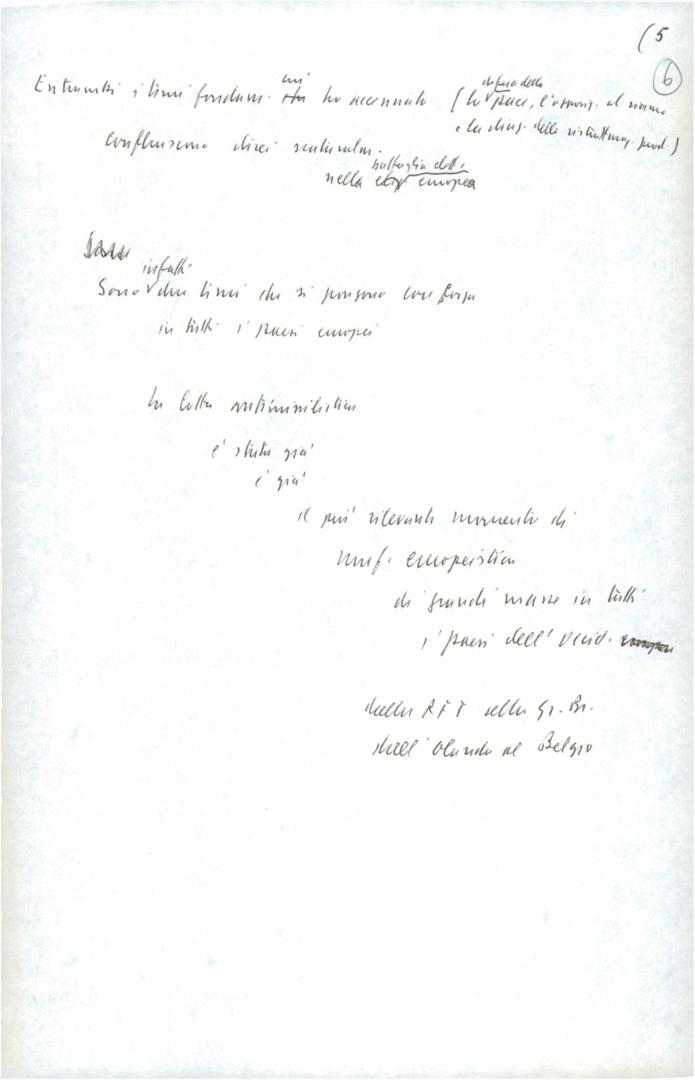 (5
6
Entrambi i temi fondam. cui ho accennato (la difesa della pace, l'opposiz. al riarmo
e la direz. della ristrutturaz. prod.)
confluiscono direi naturalm.
nella battaglia della europea
Sono infatti due temi che si pongono con forza
in tutti i paesi europei
La lotta antimilitarista
è stata già
è già
il più rilevante momento di
unif. europeistica
di grandi masse in tutti
i paesi dell'Occid.
dalla RFT alla Gr. Br.
dall'Olanda al Belgio